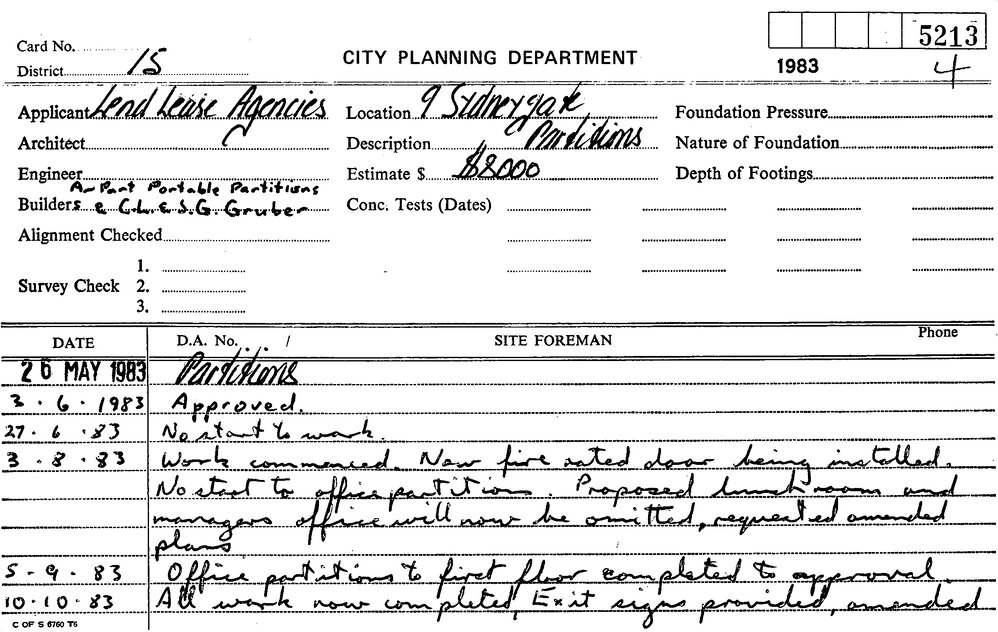 5213
Card No.
District 15
CITY PLANNING DEPARTMENT
1983
4
Applicant Lend Lease Agencies
Location 9 Sydneygate
Foundation Pressure
Architect
Description Partitions
Nature of Foundation
Engineer
Estimate $ $8000
Depth of Footings
A-Part Portable Partitions
Builders & C.L. & S.G. Gruber
Conc. Tests (Dates)
Alignment Checked
Survey Check 1.
2.
3.
DATE
D.A. No. /
SITE FOREMAN
Phone
26 MAY 1983 Partitions
3.6.1983 Approved.
27.6.83 No start to work.
3.8.83 Work commenced. New fire rated door being installed.
No start to office partitions. Proposed lunch room and
managers office will now be omitted, requested amended
plans
5-9-83 Office partitions to first floor completed to approval.
10-10-83 All work now completed, Exit signs provided, amended
C OF S 6760 T6